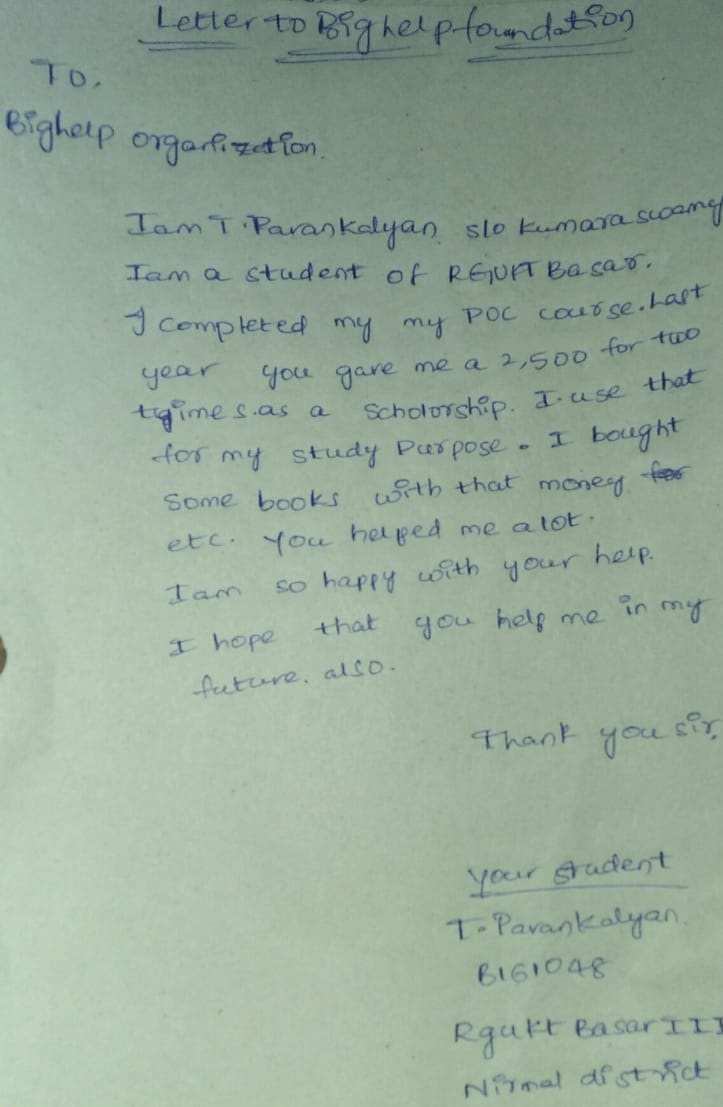 Letter to Bighelp foundation
To,
Bighelp organization.
I am T. Pavankalyan s/o kumara swamy
I am a student of RGUKT Basar.
I completed my my POC course. Last
year you gave me a 2,500 for two
times. as a Scholorship. I use that
for my study purpose. I bought
some books with that money for
etc. You helped me a lot.
I am so happy with your help.
I hope that you help me in my
future. also.
Thank you sir,
your student
T. Pavankalyan.
B161048
Rgukt Basar III
Nirmal district